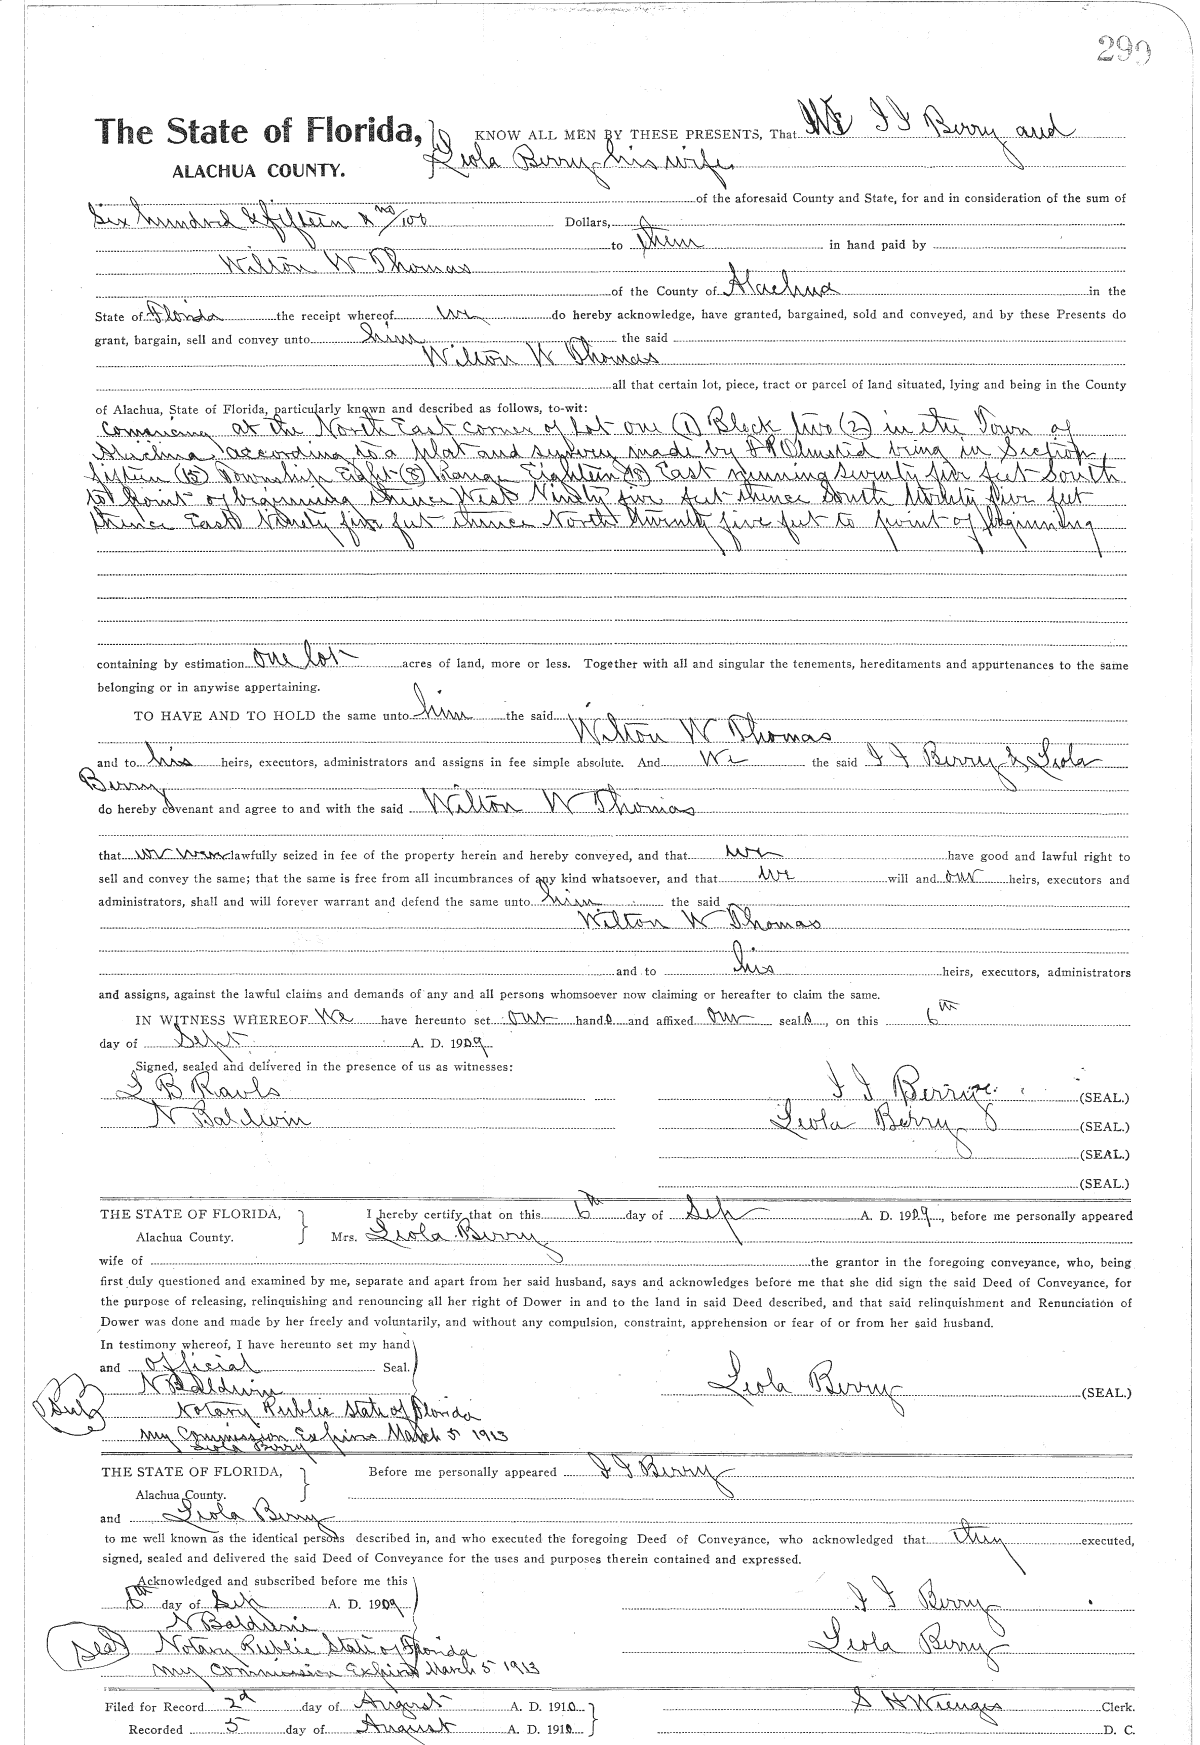 299
The State of Florida, KNOW ALL MEN BY THESE PRESENTS, That We I I Berry and
ALACHUA COUNTY. Leola Berry his wife
of the aforesaid County and State, for and in consideration of the sum of
Six hundred & fifteen & no/100 Dollars,
to them in hand paid by
Wilton W Thomas
of the County of Alachua in the
State of Florida the receipt whereof we do hereby acknowledge, have granted, bargained, sold and conveyed, and by these Presents do
grant, bargain, sell and convey unto him the said
Wilton W Thomas
all that certain lot, piece, tract or parcel of land situated, lying and being in the County
of Alachua, State of Florida, particularly known and described as follows, to-wit:
at the North East corner of Lot one (1) Block two (2) in the Town of
Alachua according to a plat and survey made by Olmsted being in Section
fifteen (15) Township Eight (8) Range Eighteen (18) East running seventy five feet South
to point of beginning thence West Ninety five feet thence South twenty five feet
thence East Ninety five feet thence North twenty five feet to point of beginning
containing by estimation one lot acres of land, more or less. Together with all and singular the tenements, hereditaments and appurtenances to the same
belonging or in anywise appertaining.
TO HAVE AND TO HOLD the same unto him the said
Wilton W Thomas
and to his heirs, executors, administrators and assigns in fee simple absolute. And We the said I I Berry & Leola
Berry
do hereby covenant and agree to and with the said Wilton W Thomas
that we were lawfully seized in fee of the property herein and hereby conveyed, and that we have good and lawful right to
sell and convey the same; that the same is free from all incumbrances of any kind whatsoever, and that we will and our heirs, executors and
administrators, shall and will forever warrant and defend the same unto him the said
Wilton W Thomas
and to his heirs, executors, administrators
and assigns, against the lawful claims and demands of any and all persons whomsoever now claiming or hereafter to claim the same.
IN WITNESS WHEREOF We have hereunto set our hands and affixed our seals, on this 6th
day of Sept A. D. 1909
Signed, sealed and delivered in the presence of us as witnesses:
L B Rawls I I Berry (SEAL.)
N Baldwin Leola Berry (SEAL.)
(SEAL.)
(SEAL.)
THE STATE OF FLORIDA, I hereby certify that on this 6th day of Sep A. D. 1909, before me personally appeared
Alachua County. Mrs. Leola Berry
wife of the grantor in the foregoing conveyance, who, being
first duly questioned and examined by me, separate and apart from her said husband, says and acknowledges before me that she did sign the said Deed of Conveyance, for
the purpose of releasing, relinquishing and renouncing all her right of Dower in and to the land in said Deed described, and that said relinquishment and Renunciation of
Dower was done and made by her freely and voluntarily, and without any compulsion, constraint, apprehension or fear of or from her said husband.
In testimony whereof, I have hereunto set my hand
and official Seal.
N Baldwin Leola Berry (SEAL.)
Seal Notary Public State of Florida
My Commission Expires March 5 1913
Leola Berry
THE STATE OF FLORIDA, Before me personally appeared I I Berry
Alachua County.
and Leola Berry
to me well known as the identical persons described in, and who executed the foregoing Deed of Conveyance, who acknowledged that they executed,
signed, sealed and delivered the said Deed of Conveyance for the uses and purposes therein contained and expressed.
Acknowledged and subscribed before me this
6th day of Sep A. D. 1909 I I Berry
N Baldwin
Seal Notary Public State of Florida Leola Berry
My Commission Expires March 5 1913
Filed for Record 2d day of August A. D. 1910 S H Wienges Clerk.
Recorded 5 day of August A. D. 1910 D. C.